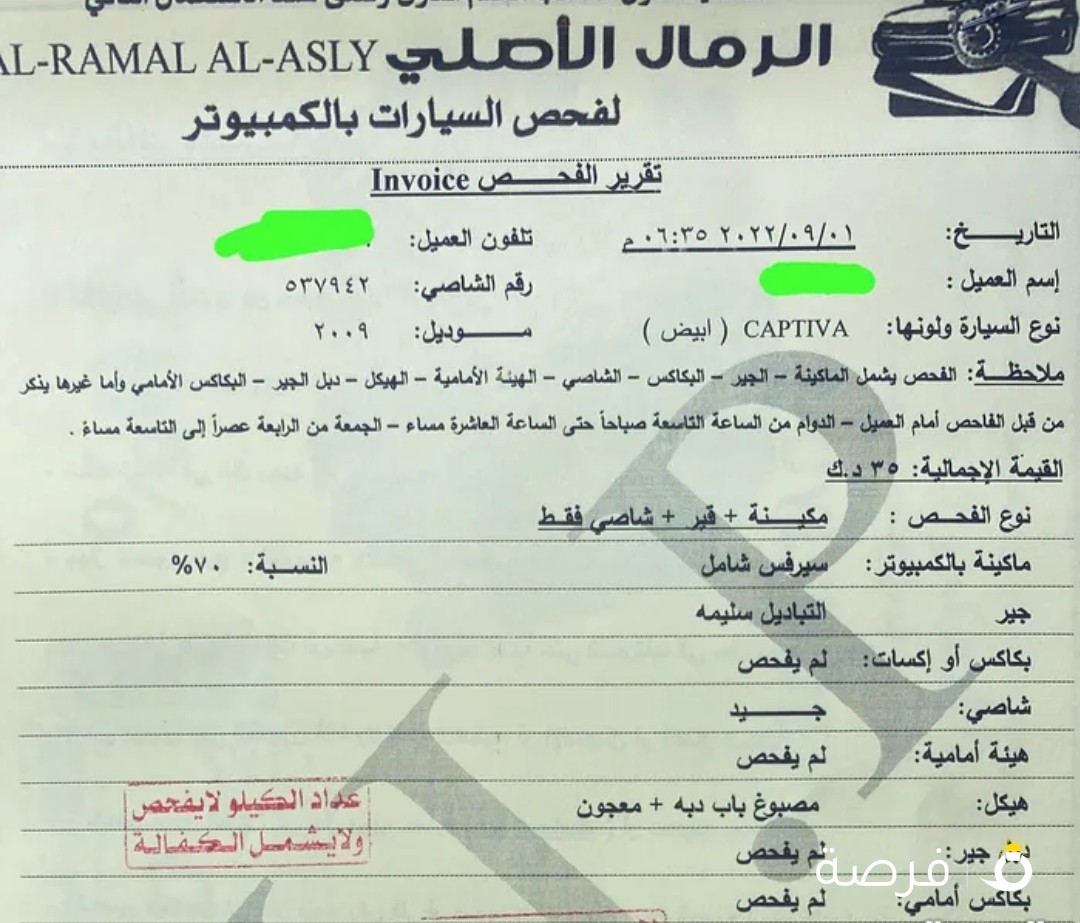 الرمال الأصلي AL-RAMAL AL-ASLY
لفحص السيارات بالكمبيوتر
تقرير الفحــــــص Invoice
التاريـــــخ: ٢٠٢٢/٠٩/٠١ ٠٦:٣٥ م تلفون العميل:
إسم العميل : رقم الشاصي: ٥٣٧٩٤٢
نوع السيارة ولونها: CAPTIVA ( ابيض ) مـــــوديل: ٢٠٠٩
ملاحظـــة: الفحص يشمل الماكينة – الجير – البكاكس – الشاصي – الهيئة الأمامية – الهيكل – دبل الجير – البكاكس الأمامي وأما غيرها يذكر
من قبل الفاحص أمام العميل – الدوام من الساعة التاسعة صباحاً حتى الساعة العاشرة مساء – الجمعة من الرابعة عصراً إلى التاسعة مساءً .
القيمة الإجمالية: ٣٥ د.ك
نوع الفحـص : مكيـــنة + قير + شاصي فقط
ماكينة بالكمبيوتر: سيرفس شامل النسـبة: ٧٠%
جير التباديل سليمه
بكاكس أو إكسات: لم يفحص
شاصي: جـــــــيد
هيئة أمامية: لم يفحص
هيكل: مصبوغ باب دبه + معجون
عداد الكيلو لايفحص
ولايشمل الكفالة
جير: لم يفحص
فرصة
بكاكس أمامي: لم يفحص